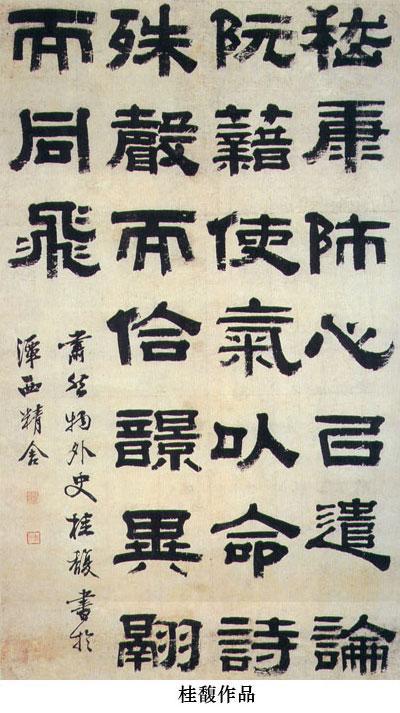 嵇康師心㠯遣論
阮藉使氣㕥命詩
殊聲而佮響異翮
而同飛
肅然物外史桂馥書於
潭西精舍
桂馥作品